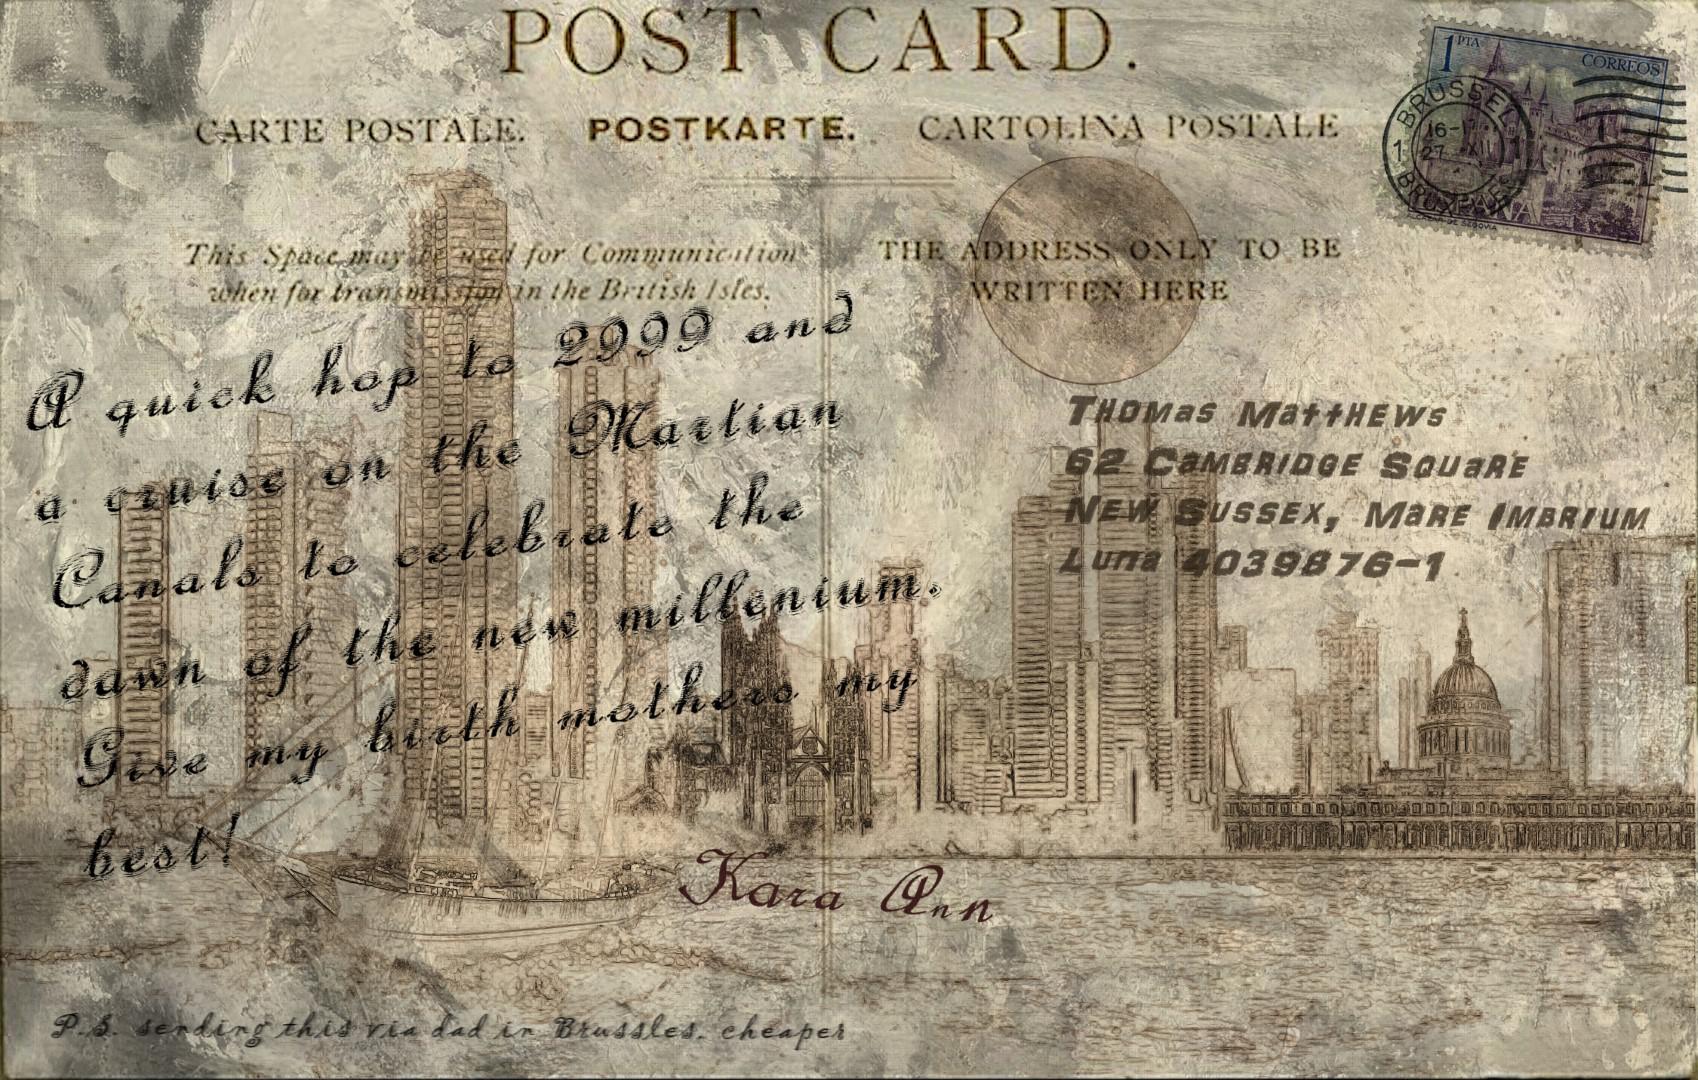 POST CARD.
CARTE POSTALE. POSTKARTE. CARTOLINA POSTALE
1 PTA CORREOS
BRUSSEL
16-1
27 XII
1 1
BRUXELLES
This Space may be used for Communication
when for transmission in the British Isles.
THE ADDRESS ONLY TO BE
WRITTEN HERE
A quick hop to 2999 and
a cruise on the Martian
Canals to celebrate the
dawn of the new millenium.
Give my birth mothers my
best!
Kara Ann
Thomas Matthews
62 Cambridge Square
New Sussex, Mare Imbrium
Luna 4039876-1
P.S. sending this via dad in Brussles. cheaper